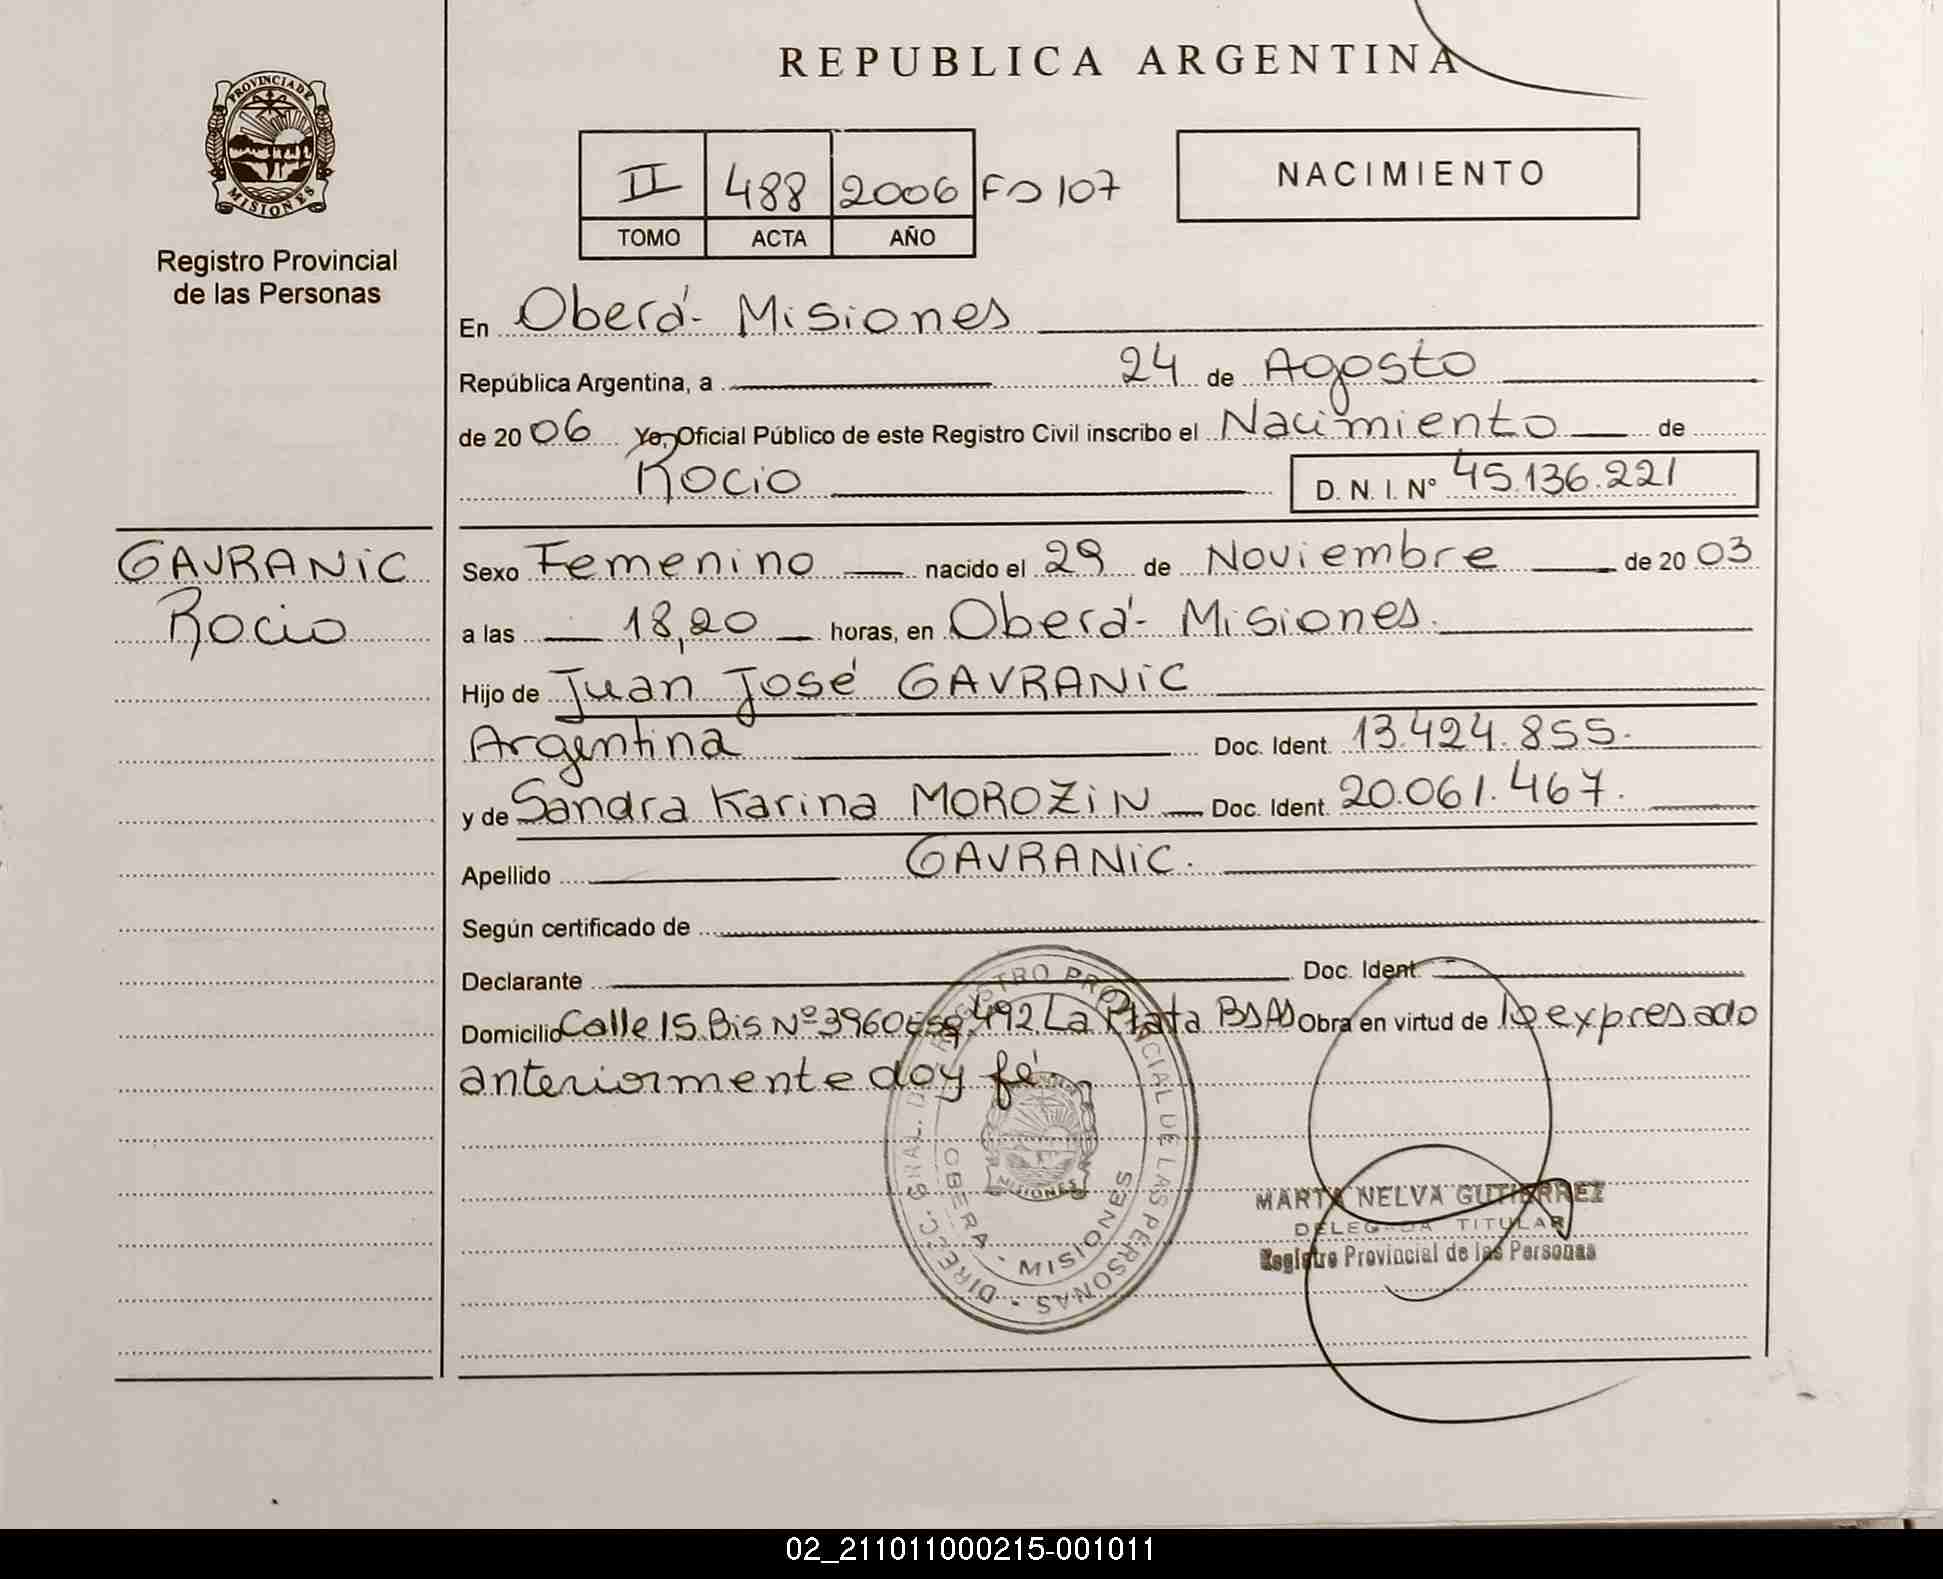 REPUBLICA ARGENTINA
PROVINCIA DE
MISIONES
Registro Provincial
de las Personas
II 488 2006 Fo 107
TOMO ACTA AÑO
NACIMIENTO
En Oberá - Misiones
República Argentina, a 24 de Agosto
de 2006 Yo, Oficial Público de este Registro Civil inscribo el Nacimiento de
Rocio D. N. I. N° 45.136.221
GAVRANIC
Rocio
Sexo Femenino nacido el 29 de Noviembre de 2003
a las 18,20 horas, en Oberá - Misiones.
Hijo de Juan José GAVRANIC
Argentina Doc. Ident. 13.424.855.
y de Sandra Karina MOROZIN Doc. Ident. 20.061.467.
Apellido GAVRANIC.
Según certificado de
Declarante Doc. Ident.
Domicilio Calle 15 Bis Nº 3960 Esq. 492 La Plata BsAs Obra en virtud de lo expresado
anteriormente doy fé.
DIRECC. GRAL. DE REGISTRO PROVINCIAL DE LAS PERSONAS
OBERA - MISIONES
MISIONES
MARTA NELVA GUTIERREZ
DELEGADA TITULAR
Registro Provincial de las Personas
02_211011000215-001011